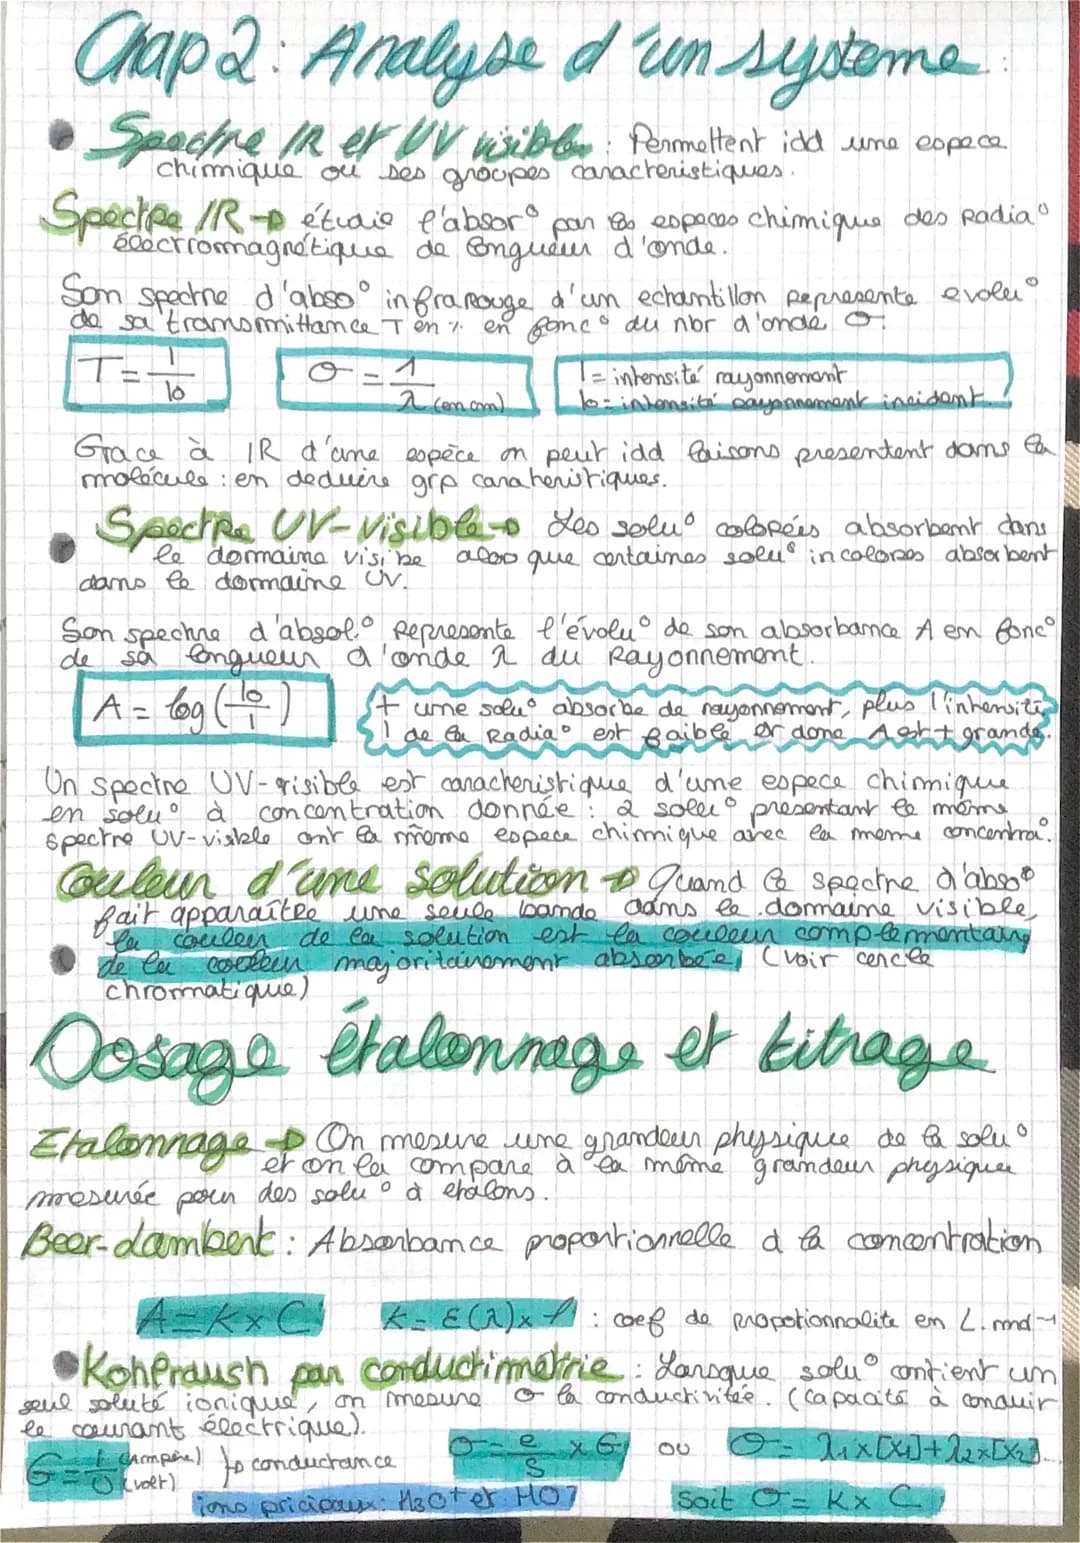 Chap 2 : Analyse d'un systeme :
Spectre IR et UV visible : Permettent idd une espece
chimique ou ses groupes caracteristiques.
Spectre IR → étudie l'absor° par les espaces chimique des radia°
électromagnétique de longueur d'onde.
Son spectre d'abso° infrarouge d'un echantillon represente evolu°
de sa transmittance T en % en fonc° du nbr d'onde σ.
T = I/I0
σ = 1/λ (en cm)
I = intensité rayonnement
I0 = intensité rayonnement incident.
Grace à IR d'une espèce on peut idd liaisons presentent dans la
molécule : en deduire grp caracteristiques.
Spectre UV-visible → Les solu° colorées absorbent dans
le domaine visibe alos que certaines solu° incolores absorbent
dans le domaine UV.
Son spectre d'absol° represente l'évolu° de son absorbance A en fonc°
de sa longueur d'onde λ du Rayonnement.
A = log (I0/I)
+ une solu° absorbe de rayonnement, plus l'intensité
I de la Radia° est faible et donc A est + grande.
Un spectre UV-visible est caracteristique d'une espece chimique
en solu° à concentration donnée : 2 solu° presentant le même
spectre UV-visible ont la même espece chimique avec la meme concentra°.
Couleur d'une solution → Quand le spectre d'abso°
fait apparaître une seule bande dans le domaine visible,
la couleur de la solution est la couleur complementaire
de la couleur majoritairement absorbée, (voir cercle
chromatique)
Dosage étalonnage et titrage
Etalonnage → On mesure une grandeur physique de la solu°
et on la compare à la même grandeur physique
mesurée pour des solu° à étalons.
Beer-Lambert : Absorbance proportionnelle à la concentration
A = K x C
k = ε(λ) x l : coef de propotionnalite en L.mol-1
Kohlraush par conductimétrie : Lorsque solu° contient un
seul soluté ionique, on mesure σ la conductivitée. (capacité à conduir
le courant électrique).
G = I/U (Ampère) (volt) → conductance
σ = e/S x G ou σ = λ1 x [X1] + λ2 x [X2]...
ions pricipaux : H3O+ et HO-
Soit σ = K x C